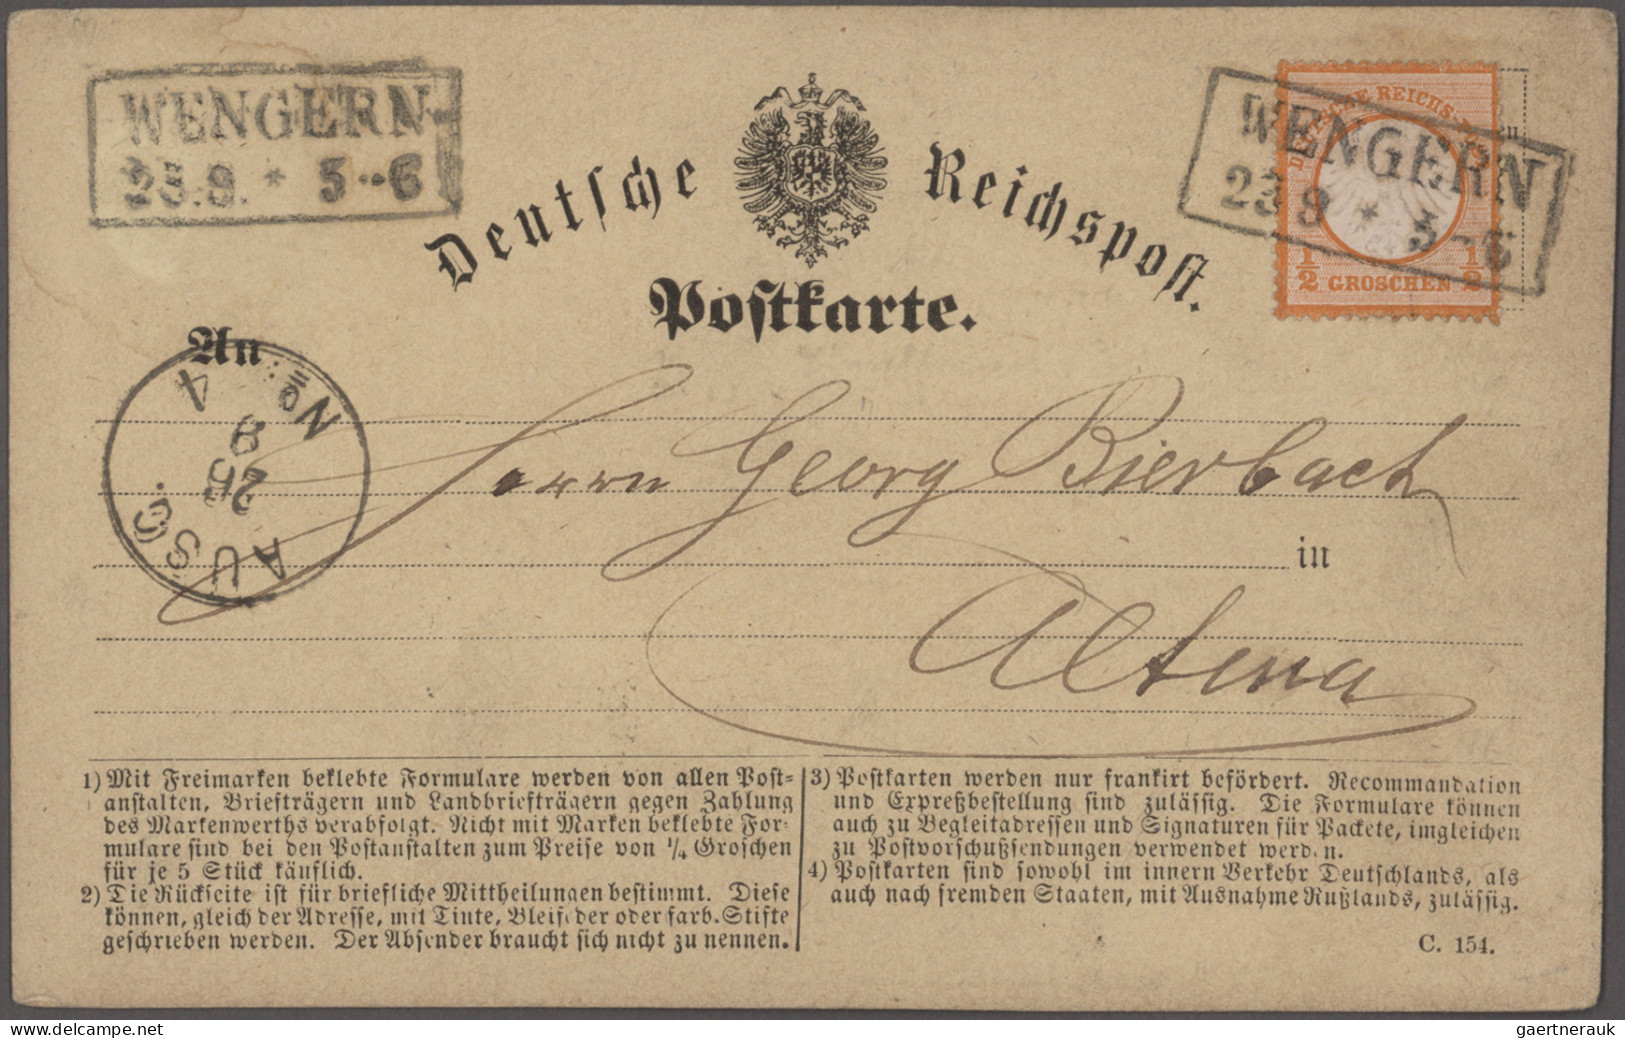 WENGERN
23.9. * 5-6
Deutsche Reichspost.
Postkarte.
DEUTSCHE REICHS-POST
1/2 GROSCHEN 1/2
WENGERN
23 9 * 5-6
An
No. 4
25
9
AUSG.
Herrn Georg Bierbach
in
Altena
1) Mit Freimarken beklebte Formulare werden von allen Post-
anstalten, Briefträgern und Landbriefträgern gegen Zahlung
des Markenwerths verabfolgt. Nicht mit Marken beklebte For-
mulare sind bei den Postanstalten zum Preise von 1/4 Groschen
für je 5 Stück käuflich.
2) Die Rückseite ist für briefliche Mittheilungen bestimmt. Diese
können, gleich der Adresse, mit Tinte, Bleifeder oder farb. Stifte
geschrieben werden. Der Absender braucht sich nicht zu nennen.
3) Postkarten werden nur frankirt befördert. Recommandation
und Expreßbestellung sind zulässig. Die Formulare können
auch zu Begleitadressen und Signaturen für Packete, imgleichen
zu Postvorschußsendungen verwendet werden.
4) Postkarten sind sowohl im innern Verkehr Deutschlands, als
auch nach fremden Staaten, mit Ausnahme Rußlands, zulässig.
C. 154.
delcampe.net
gaertnerauk